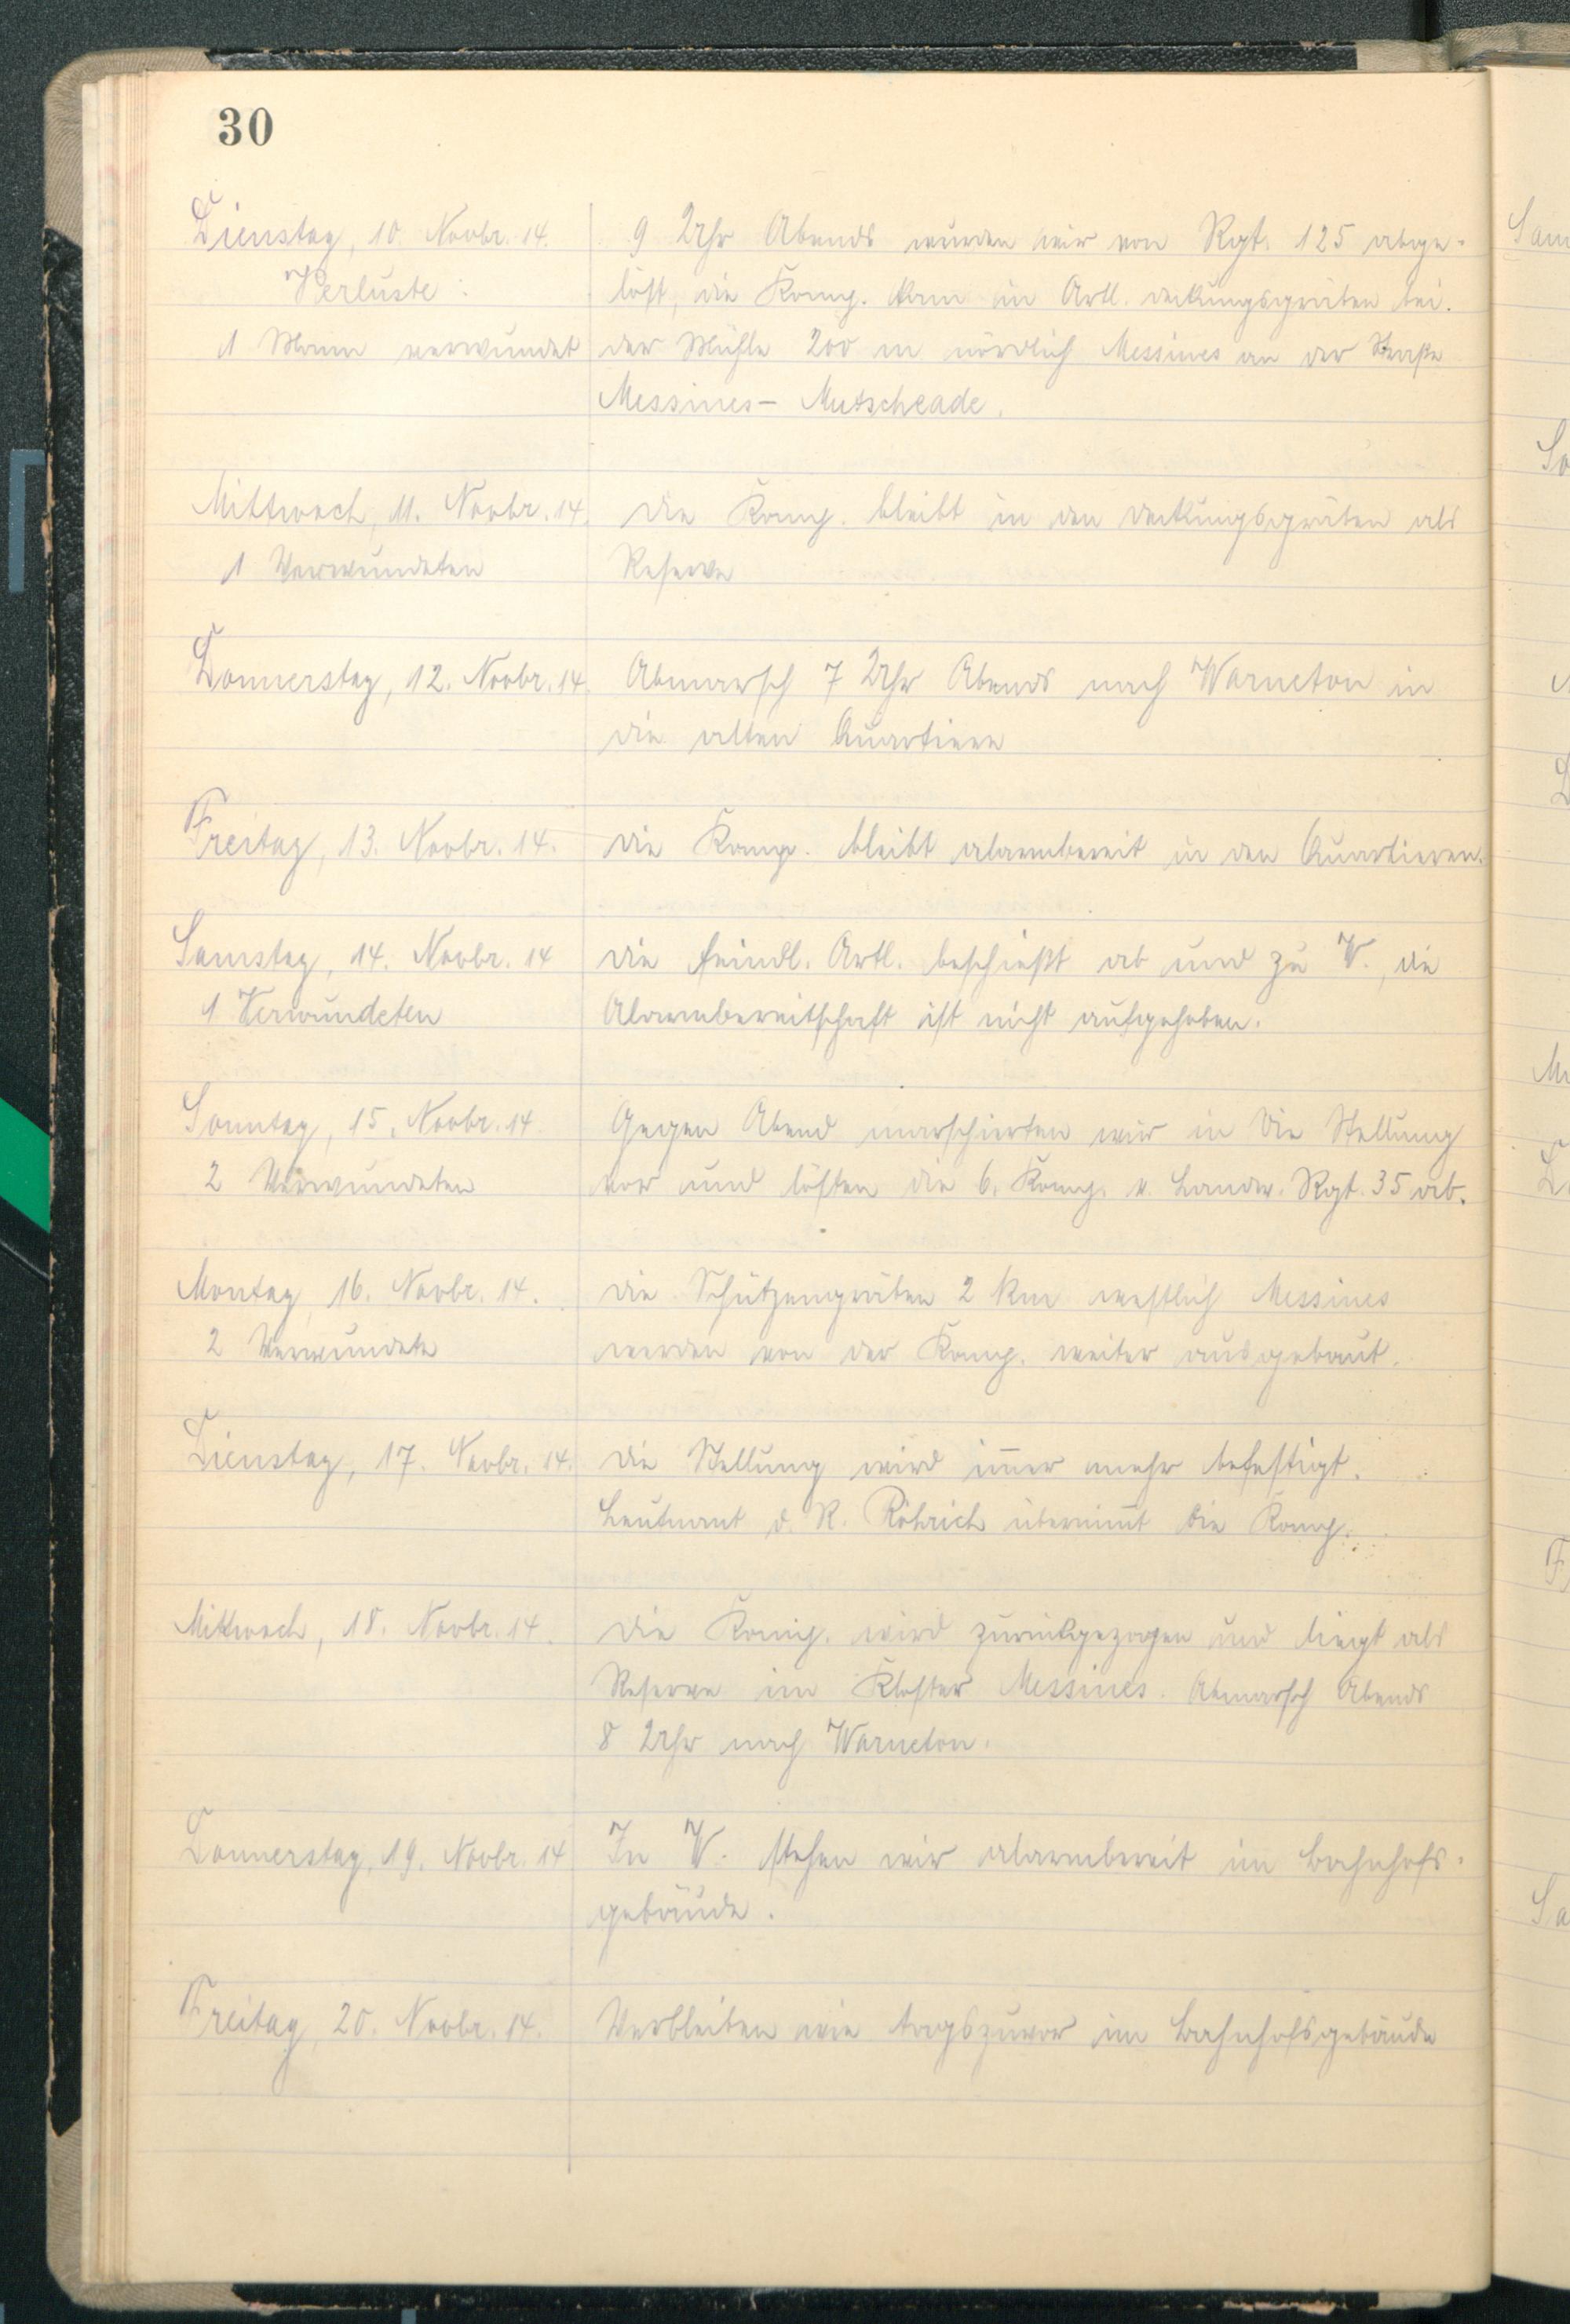 30
Dienstag, 10. Novbr. 14.
Verluste:
1 Mann verwundet
9 Uhr Abends wurden wir von Rgt. 125 abge-
löst, die Komp. kam in Artl. deckungsgräben bei
der Mühle 200 m nördlich Messines an der Straße
Messines - Mutscheade.
Mittwoch, 11. Novbr. 14.
1 Verwundeten
die Komp. bleibt in den deckungsgräben als
Reserve
Donnerstag, 12. Novbr. 14.
Abmarsch 7 Uhr Abends nach Warneton in
die alten Quartiere
Freitag, 13. Novbr. 14.
die Komp. bleibt alarmbereit in den Quartieren.
Samstag, 14. Novbr. 14
1 Verwundeten
die feindl. Artl. beschießt ab und zu W., die
Alarmbereitschaft ist nicht aufgehoben.
Sonntag, 15. Novbr. 14.
2 Verwundeten
Gegen Abend marschierten wir in die Stellung
vor und lösten die 6. Komp. v. Landw. Rgt. 35 ab.
Montag 16. Novbr. 14.
2 Verwundete
die Schützengräben 2 km westlich Messines
werden von der Komp. weiter ausgebaut.
Dienstag, 17. Novbr. 14.
die Stellung wird im̅er mehr befestigt.
Leutnant d. R. Röhrich übernim̅t die Komp.
Mittwoch, 18. Novbr. 14.
die Komp. wird zurückgezogen und liegt als
Reserve im Kloster Messines. Abmarsch Abends
8 Uhr nach Warneton.
Donnerstag, 19. Novbr. 14
In W. stehen wir alarmbereit im Bahnhofs-
gebäude.
Freitag, 20. Novbr. 14.
Verbleiben wie tagszuvor im Bahnhofsgebäude